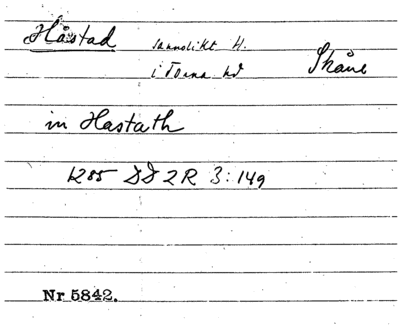 Håstad sannolikt H.
i Torna hd Skåne
in Hastath
1285 DD 2R 3:149
Nr 5842.